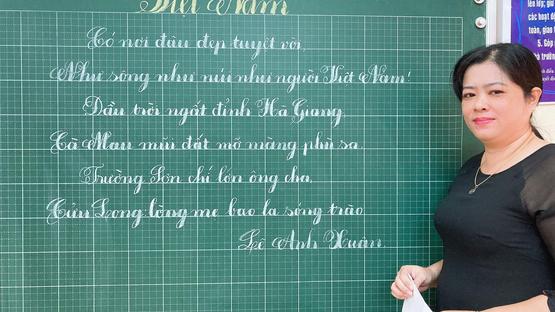 Việt Nam
Có nơi đâu đẹp tuyệt vời
Như sông như núi như người Việt Nam!
Đầu trời ngất đỉnh Hà Giang
Cà Mau mũi đất mỡ màng phù sa.
Trường Sơn chí lớn ông cha
Cửu Long lòng mẹ bao la sóng trào
Lê Anh Xuân